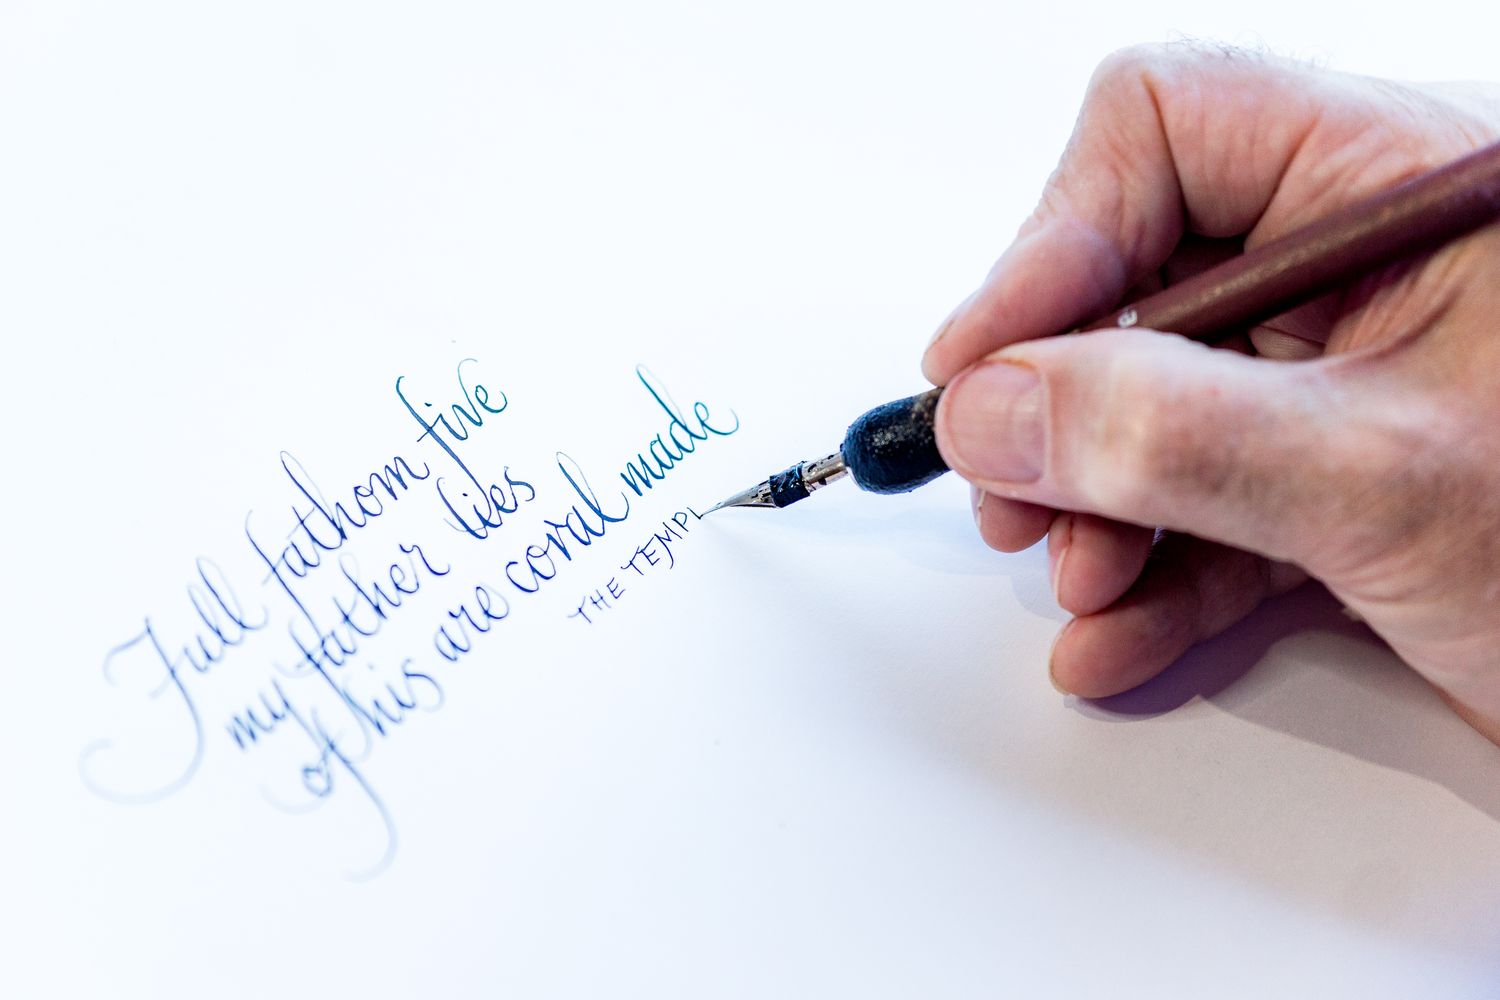 Full fathom five
my father lies
of his are coral made
THE TEMPL